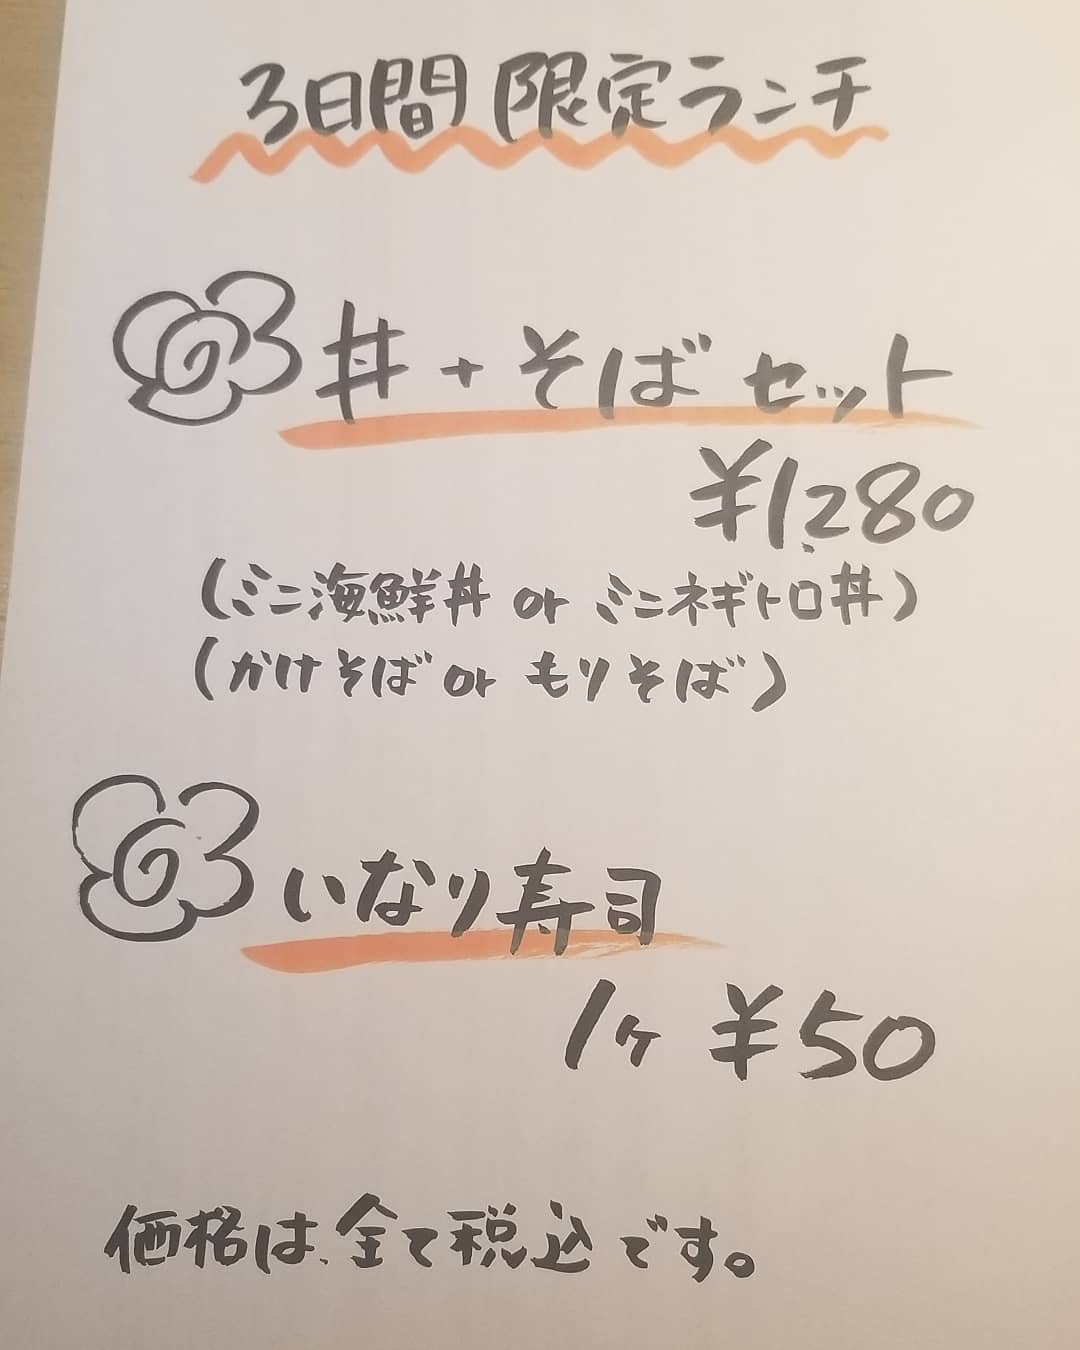 3日間限定ランチ
丼+そばセット
¥1,280
(ミニ海鮮丼 or ミニネギトロ丼)
(かけそば or もりそば)
いなり寿司
1ヶ ¥50
価格は、全て税込です。